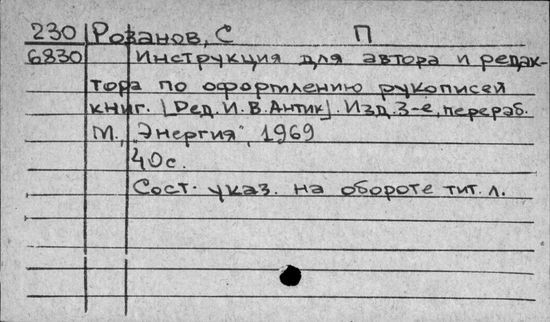 230 Розанов, С П
6830 Инструкция для автора и редак-
тора по оформлению рукописей
книг. [Ред. И. В. Антик]. Изд. 3-е, перераб.
М., "Энергия", 1969
40с.
Сост. указ. на обороте тит. л.